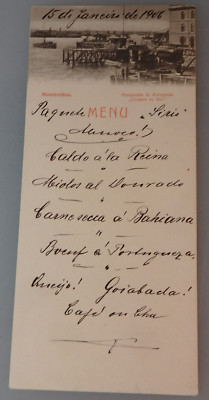 15 de janeiro de 1906
Montevideo.
Paquete MENU "Sirio"
Almoço!
Caldo á la Reina
"
Miolos al Dourado
"
Carne secca á Bahiana
"
Boeuf á Portugueza
"
Queijo! Goiabada!
Café ou Cha